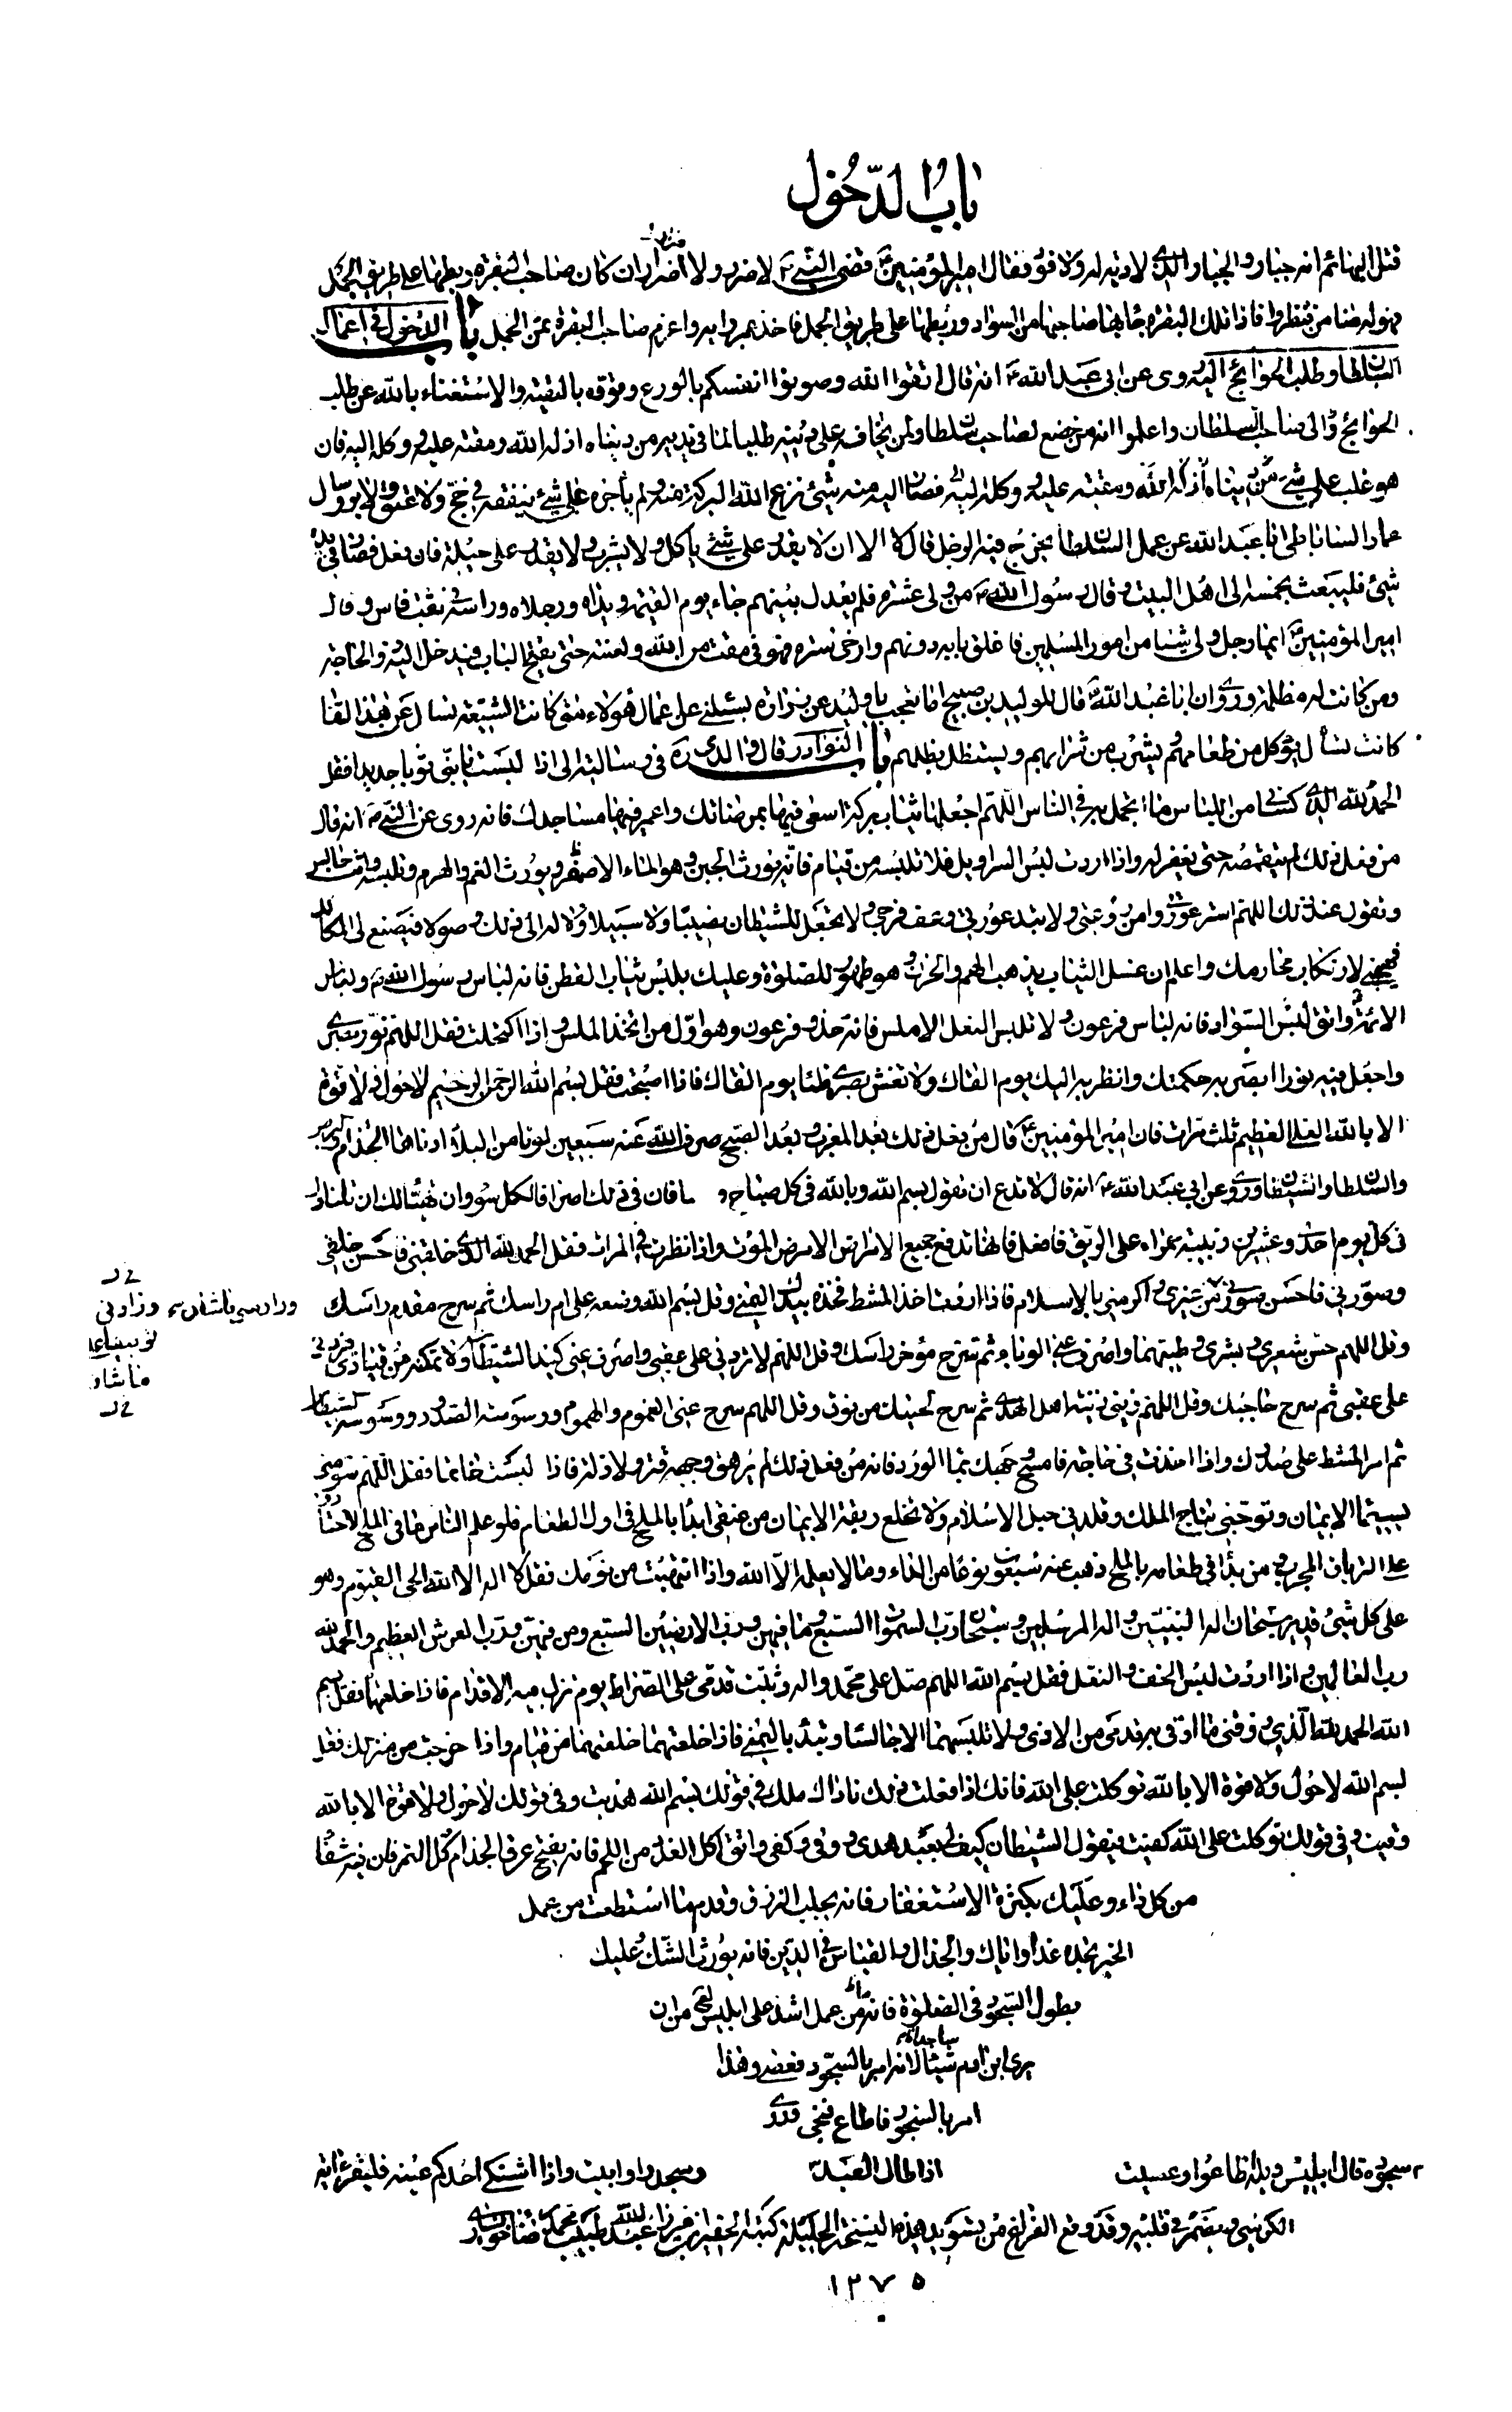 باب الدخول
قتل البهائم انه جبار والجبار الذى لا دية له ولا قود فقال امير المؤمنين ع قضى النبى ص لا ضرر ولا اضرار ان كان صاحب البقرة ربطها على طريق الجمل
فهو له ضامن فنظروا فاذا تلك البقرة جاء بها صاحبها من السواد وربطها على طريق الجمل فاخذ برايه واغرم صاحب البقرة ثمن الجمل باب الدخول فى اعمال
السلطان وطلب الحوائج اليه روى عن ابى عبد الله ع انه قال اتقوا الله وصونوا انفسكم بالورع وقوه بالتقية والاستغناء بالله عن طلب
الحوائج الى صاحب السلطان واعلموا انه من خضع لصاحب سلطان ولمن يخافه على دينه طلبا لما فى يديه من دنياه اذله الله ومقته عليه ووكله اليه فان
هو غلب على شئ من دنياه وصار اليه منه شئ نزع الله البركة منه ولم ياجره على شئ ينفقه فى حج ولا عتق ولا بر وسال
عمار الساباطى ابا عبد الله عن عمل السلطان يخرج فيه الرجل قال لا الا ان لا يقدر على شئ ياكل ولا يشرب ولا يقدر على حيلة فان فعل فصار فى يده
شئ فليبعث بخمسه الى اهل البيت وقال رسول الله ص من ولى عشرة فلم يعدل بينهم جاء يوم القيمة ويداه ورجلاه وراسه فى ثقب فاس وقال
امير المؤمنين ع ايما رجل ولى شيئا من امور المسلمين فاغلق بابه دونهم وارخى ستره فهو فى مقت من الله ولعنته حتى يفتح الباب فيدخل اليه ذو الحاجة
ومن كانت له مظلمة وروى ان ابا عبد الله ع قال للوليد بن صبيح اما تعجب يا وليد من زرارة يسئلنى عن اعمال هؤلاء متى كانت الشيعة تسال عن هذا انما
كانت تسال يؤكل من طعامهم ويشرب من شرابهم ويستظل بظلهم باب النوادر قال والدى ره فى رسالته الى اذا لبست يا بنى ثوبا جديدا فقل
الحمد لله الذى كسانى من اللباس ما اتجمل به فى الناس اللهم اجعلها ثياب بركة اسعى فيها بمرضاتك واعمر فيها مساجدك فانه روى عن النبى ص انه قال
من فعل ذلك لم يتقمصه حتى يغفر له واذا اردت لبس السراويل فلا تلبسه من قيام فانه يورث الجبن وهو الماء الاصفر ويورث الغم والهرم وتلبسه وانت جالس
وتقول عند ذلك اللهم استر عورتى وامن روعتى ولا تبد عورتى وعف فرجى ولا تجعل للشيطان نصيبا ولا سبيلا ولا له الى ذلك وصولا فيصنع لى المكائد
فيهيجنى لارتكاب محارمك واعلم ان غسل الثياب يذهب الهم والحزن وهو طهور للصلوة وعليك بلبس ثياب القطن فانه لباس رسول الله ص ولباس
الائمة واتق لبس السواد فانه لباس فرعون ولا تلبس النعل الاملس فانه حذو فرعون وهو اول من اتخذ الملس واذا اكتحلت فقل اللهم نور بصرى
واجعل فيه نورا ابصر به حكمتك وانظر به اليك يوم القاك ولا تغش بصرى ظلما يوم القاك فاذا اصبحت فقل بسم الله الرحمن الرحيم لا حول ولا قوة
الا بالله العلى العظيم ثلث مرات فان امير المؤمنين ع قال من فعل ذلك بعد المغرب وبعد الصبح صرف الله عنه سبعين لونا من البلاء ادناها الجذام والبرص
والسلطان والشيطان وروى عن ابى عبد الله ع انه قال لا تدع ان تقول بسم الله وبالله فى كل صباح ومسا فان فى ذلك صرفا لكل سوء وان تهيا لك ان تناول
فى كل يوم احدى وعشرين زبيبة حمراء على الريق فافعل فانها تدفع جميع الامراض الا مرض الموت واذا نظرت فى المراة فقل الحمد لله الذى خلقنى فاحسن خلقى
وصورنى فاحسن صورتى واكرمنى بالاسلام فاذا اردت اخذ المشط فخذه بيدك اليمنى وقل بسم الله وضعه على ام راسك ثم سرح مقدم راسك
وقل اللهم حسن شعرى وبشرى وطيبهما واصرف عنى الوباء ثم تسرح مؤخر راسك وقل اللهم لا تردنى على عقبى واصرف عنى كيد الشيطان ولا تمكنه من قيادى فيردنى
على عقبى ثم سرح حاجبك وقل اللهم زينى بزينة اهل الهدى ثم سرح لحيتك من فوق وقل اللهم سرح عنى الغموم والهموم ووسوسة الصدور ووسوسة الشيطان
ثم امر المشط على صدرك واذا اخذت فى حاجة فامسح وجهك بماء الورد فانه من فعل ذلك لم يرهق وجهه قتر ولا ذلة فاذا لبست خاتما فقل اللهم سومنى
بسيماء الايمان وتوجنى بتاج الملك وقلدنى حبل الاسلام ولا تخلع ربقة الايمان من عنقى ابدا بالملح فى اول الطعام فلو علم الناس ما فى الملح لاختاروه
على الترياق المجرب من بدا فى طعامه بالملح ذهب عنه سبعون نوعا من الداء وما لا يعلمه الا الله واذا انتبهت من نومك فقل لا اله الا الله الحى القيوم وهو
على كل شئ قدير سبحان اله النبيين واله المرسلين وسبحان رب السموات السبع وما فيهن ورب الارضين السبع ومن فيهن ورب العرش العظيم والحمد لله
رب العالمين واذا اردت لبس الخف والنعل فقل بسم الله اللهم صل على محمد واله وثبت قدمى على الصراط يوم تزل فيه الاقدام فاذا خلعتهما فقل بسم
الله الحمد لله الذى رزقنى ما اوقى به قدمى من الاذى ولا تلبسهما الا جالسا وتبدء باليمنى فاذا خلعتهما خلعتهما من قيام واذا خرجت من منزلك فقل
بسم الله لا حول ولا قوة الا بالله توكلت على الله فانك اذا فعلت ذلك ناداك ملك فى قولك بسم الله هديت وفى قولك لا حول ولا قوة الا بالله
وقيت وفى قولك توكلت على الله كفيت فيقول الشيطان كيف لى بعبد هدى ووقى وكفى واتق اكل الغدد من اللحم فانه يفتح عرق الجذام كل التمر فان فيه شفاء
من كل داء وعليك بكثرة الاستغفار فانه يجلب الرزق وقدم ما استطعت من عمل
الخير تجده غدا واياك والجدال والقياس فى الدين فانه يورث الشك وعليك
بطول السجود فى الصلوة فانه ما من عمل اشد على ابليس لع من ان
يرى ابن ادم ساجدا لانه امر بالسجود فعصى وهذا
امر بالسجود فاطاع فنجى وروى
اذا طال العبد سجوده قال ابليس ويله اطاعوا وعصيت وسجدوا وابيت واذا اشتكى احدكم عينه فليقرء اية
الكرسى ويضمر فى قلبه وقد وقع الفراغ من تسويد هذه النسخة الجليلة كتبه الحقير
١٢٧٥